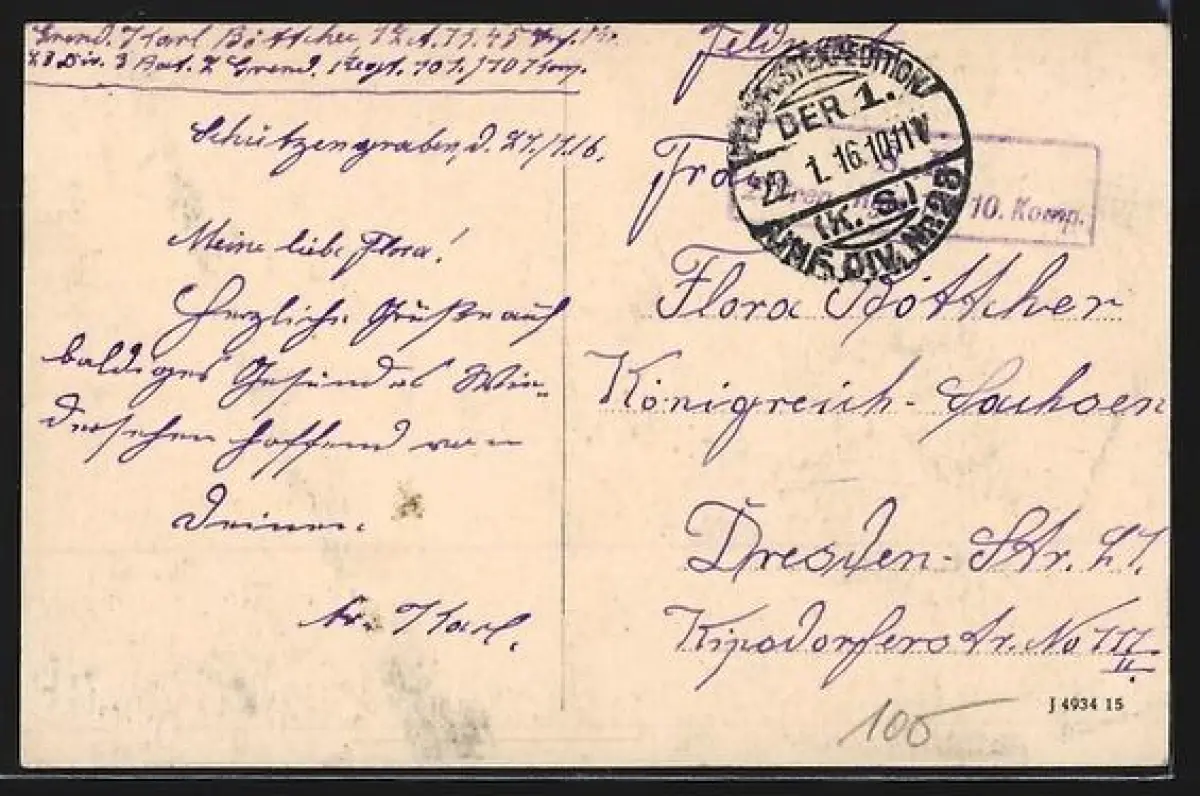 Grend. Karl Böttcher, 12. A.
23 Div. 3 Bat. 2 Grend. Regt. 101./10 Komp.
Schützengraben, d. 27./1.16.
Meine liebe Flora!
Herzliche Grüße auf
baldiges Gesundes Wie-
dersehen hoffend von
Deinem
tr. Karl.
Feldpost
DER 1.
22. 1. 16. 10-11 V
(K. S.)
INF. DIV. NR. 23
10. Komp.
Frau
Flora Böttcher
Königreich-Sachsen
Dresden-Str. 27.
Kipsdorferstr. No 111 II.
106
J 4934 15